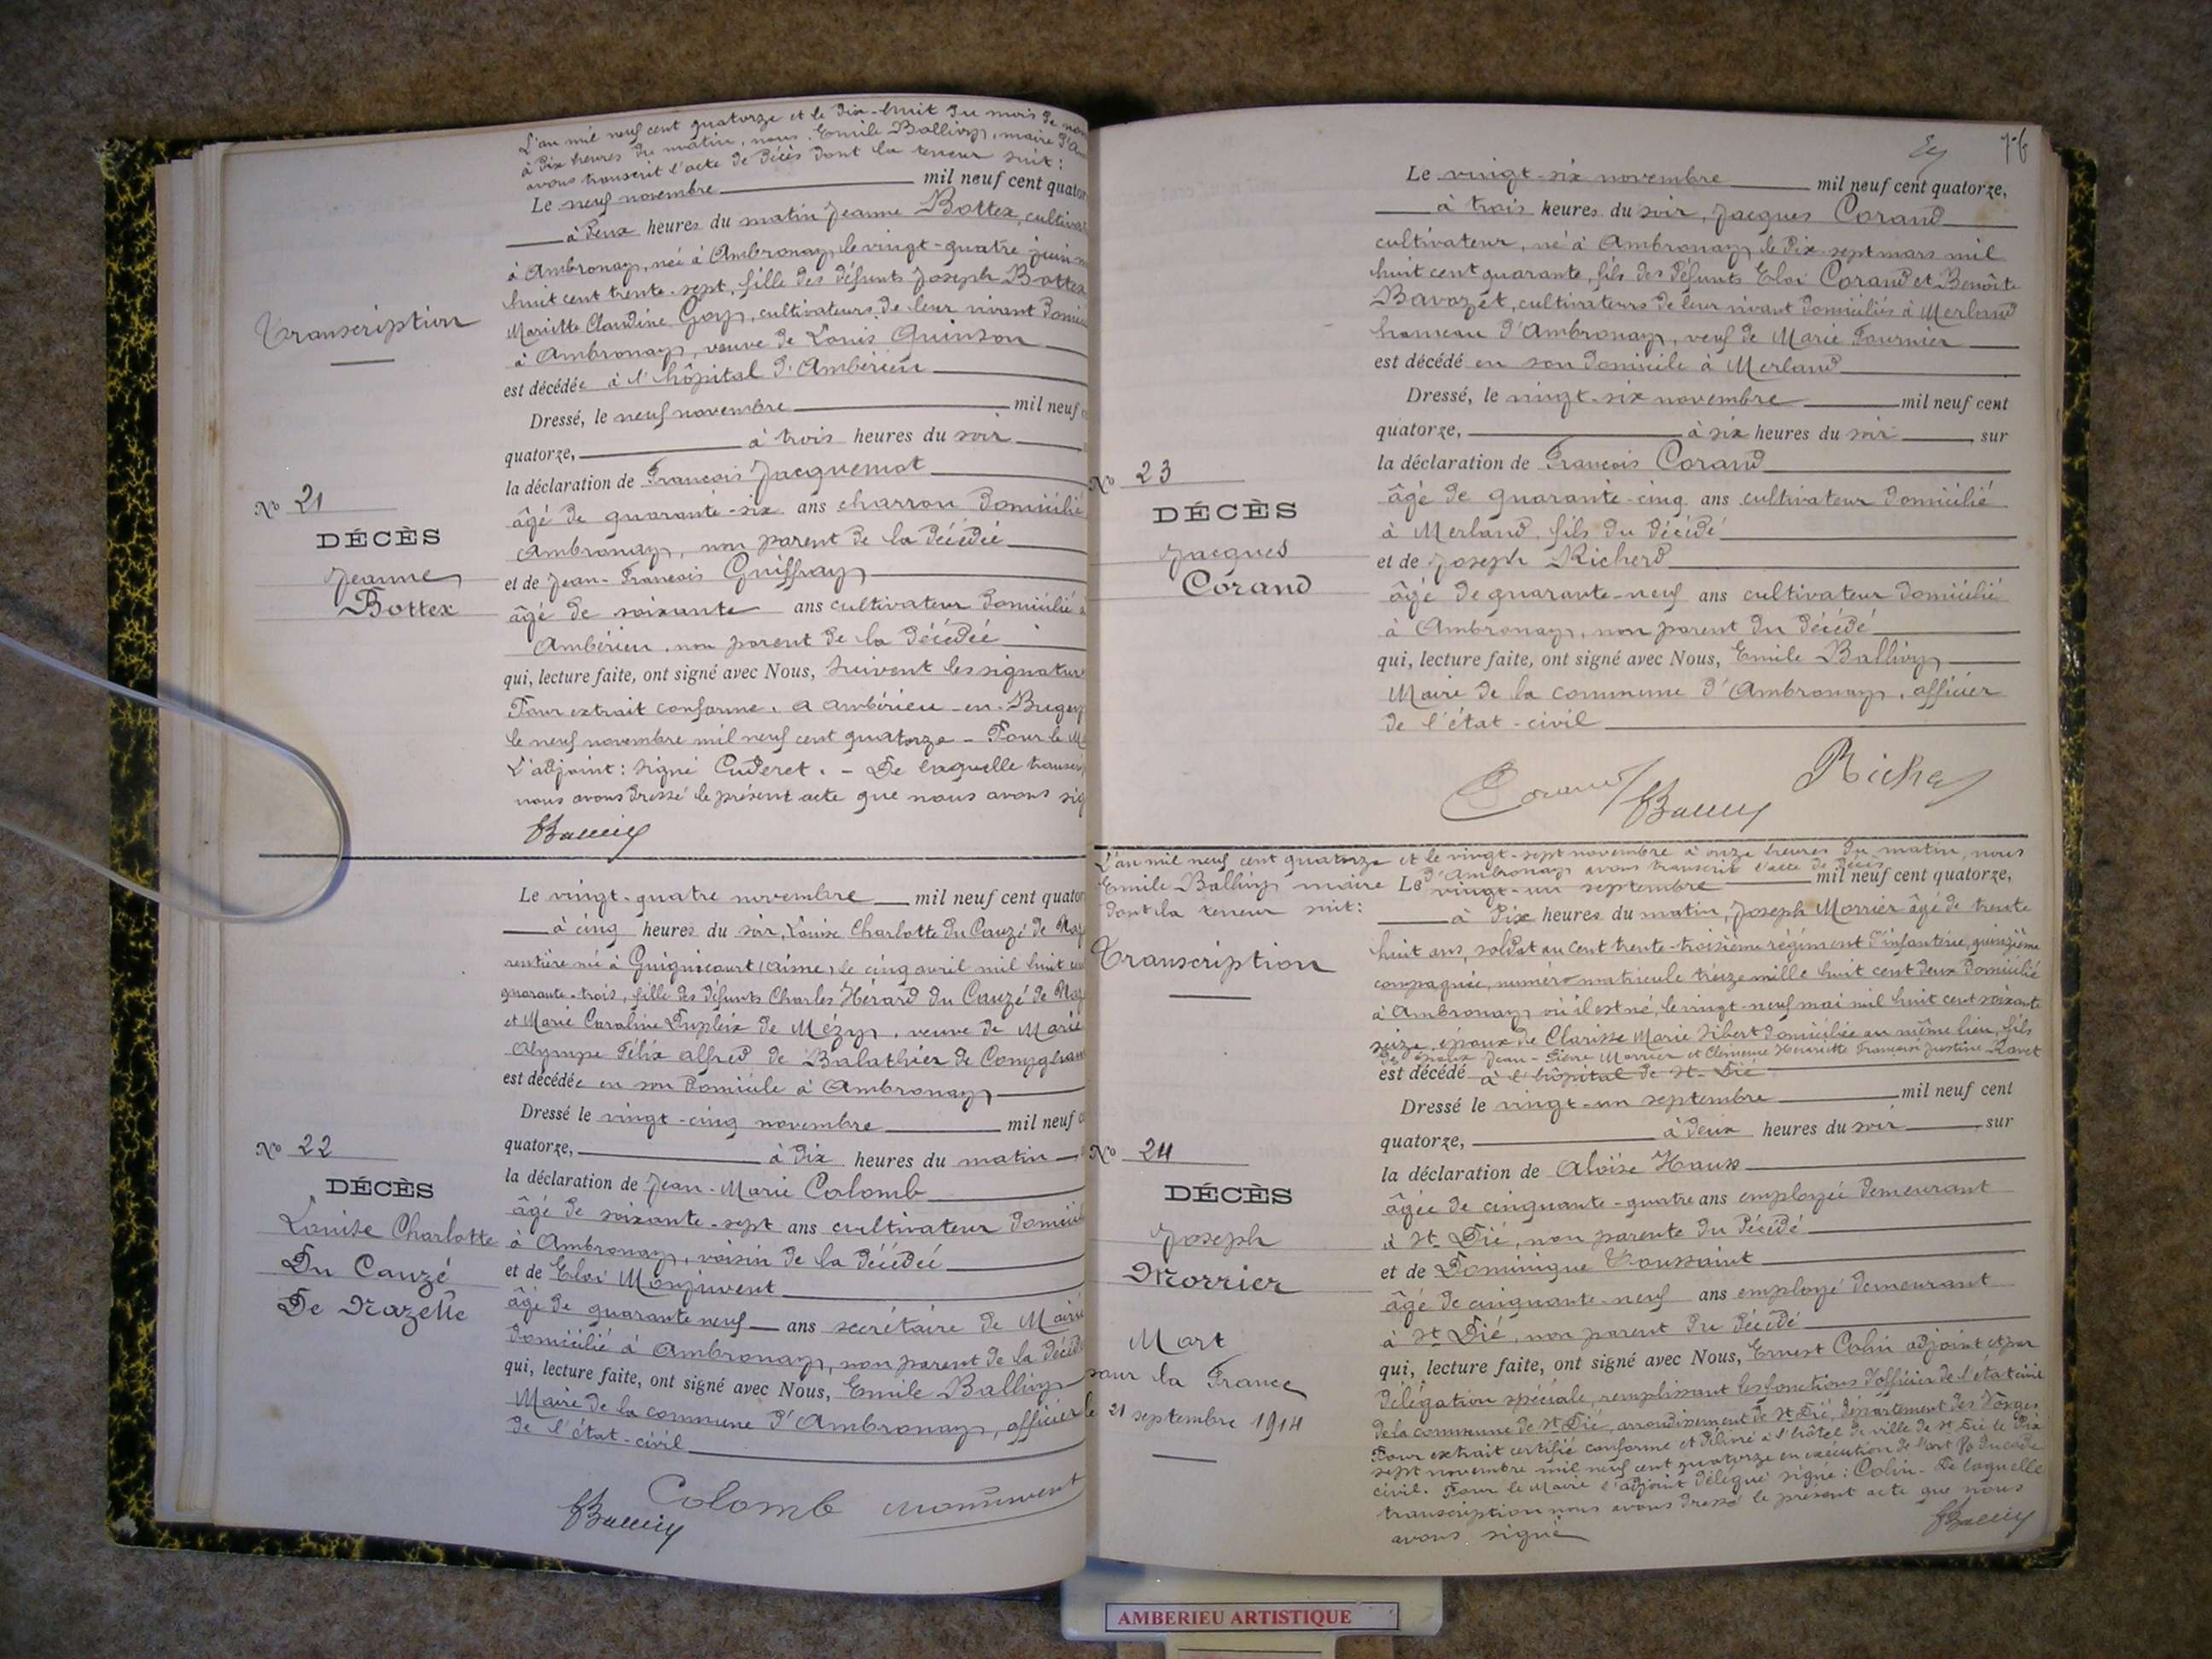 L'an mil neuf cent quatorze et le dix-huit du mois de
à dix heures du matin, nous Emile Ballivy, maire d'
avons transcrit l'acte de décès dont la teneur suit :
Le neuf novembre mil neuf cent
à deux heures du matin Jeanne Bottex,
à Ambronay, née à Ambronay le vingt-quatre juin
huit cent trente-sept, fille des défunts Joseph Bottex
Mariette Claudine Goy, cultivateurs de leur vivant
à Ambronay, veuve de Louis Quinson
est décédée à l'hôpital d'Ambérieu
Dressé, le neuf novembre mil neuf
quatorze, à trois heures du soir
la déclaration de François Jacquemot
âgé de quarante-six ans charron domicilié
Ambronay, non parent de la décédée
et de Jean-François Guiffray
âgé de soixante ans cultivateur domicilié à
Ambérieu, non parent de la décédée
qui, lecture faite, ont signé avec Nous, suivent les
Pour extrait conforme. A Ambérieu-en-Bugey
le neuf novembre mil neuf cent quatorze - Pour le
L'adjoint : signé Cuderet. - De laquelle
nous avons dressé le présent acte que nous avons
Transcription
No 21
DÉCÈS
Jeanne
Bottex
Le vingt-quatre novembre mil neuf cent
à cinq heures du soir, Louise Charlotte Du Cauzé de
rentière né à Guignicourt (Aisne) le cinq avril mil huit
quarante-trois, fille des défunts Charles Hérard du Cauzé de
et Marie Caroline Dupleix de Mézy, veuve de Marie
Olympe Félix Alfred de Balathier de
est décédée en son domicile à Ambronay
Dressé le vingt-cinq novembre mil neuf
quatorze, à dix heures du matin
la déclaration de Jean-Marie Colomb
âgé de soixante-sept ans cultivateur
à Ambronay, voisin de la décédée
et de Eloi Monjuvent
âgé de quarante neuf ans secrétaire de Mairie
domicilié à Ambronay, non parent de la
qui, lecture faite, ont signé avec Nous, Emile Ballivy
Maire de la commune d'Ambronay, officier
de l'état-civil
Colomb Monjuvent
No 22
DÉCÈS
Louise Charlotte
Du Cauzé
De Nazelle
76
Le vingt-six novembre mil neuf cent quatorze,
à trois heures du soir, Jacques Corand
cultivateur, né à Ambronay le dix sept mars mil
huit cent quarante, fils des défunts Eloi Corand et Benoîte
Bavozet, cultivateurs de leur vivant domiciliés à Merland
hameau d'Ambronay, veuf de Marie Fournier
est décédé en son domicile à Merland
Dressé, le vingt-six novembre mil neuf cent
quatorze, à six heures du soir, sur
la déclaration de François Corand
âgé de quarante-cinq ans cultivateur domicilié
à Merland, fils du décédé
et de Joseph Richerd
âgé de quarante-neuf ans cultivateur domicilié
à Ambronay, non parent du décédé
qui, lecture faite, ont signé avec Nous, Emile Ballivy
Maire de la commune d'Ambronay, officier
de l'état-civil
Corand
No 23
DÉCÈS
Jacques
Corand
L'an mil neuf cent quatorze et le vingt-sept novembre à onze heures du matin, nous
Emile Ballivy maire d'Ambronay avons transcrit l'acte de décès
dont la teneur suit :
Le vingt-un septembre mil neuf cent quatorze,
à dix heures du matin, Joseph Morrier âgé de trente
huit ans, soldat au cent trente-troisième régiment d'infanterie, quinzième
compagnie, numéro matricule treize mille huit cent deux domicilié
à Ambronay où il est né, le vingt-neuf mai mil huit cent soixante
seize, époux de Clarisse Marie Sibert domiciliée au même lieu, fils
de époux Jean-Pierre Morrier et Clémence Henriette Françoise Justine Ravet
est décédé à l'hôpital de St-Dié
Dressé le vingt-un septembre mil neuf cent
quatorze, à deux heures du soir, sur
la déclaration de Aloïse Haus
âgée de cinquante-quatre ans employée demeurant
à St-Dié, non parente du décédé
et de Dominique Toussaint
âgé de cinquante-neuf ans employé demeurant
à St Dié, non parent du décédé
qui, lecture faite, ont signé avec Nous, Ernest Colin adjoint et par
délégation spéciale, remplissant les fonctions d'officier de l'état civil
de la commune de St Dié, arrondissement de St Dié, département des Vosges
Pour extrait certifié conforme et délivré à l'hôtel de ville de St Dié le dix
sept novembre mil neuf cent quatorze en exécution de l'art 80 du code
civil. Pour le Maire l'adjoint délégué signé : Colin. De laquelle
transcription nous avons dressé le présent acte que nous
avons signé
Transcription
No 24
DÉCÈS
Joseph
Morrier
Mort
pour la France
le 21 septembre 1914
AMBERIEU ARTISTIQUE